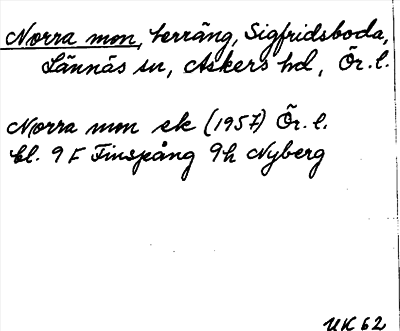 Norra mon, terräng, Sigfridsboda,
Lännäs sn, Askers hd, Ör. l.
Norra mon ek (1957) Ör. l.
bl. 9 F Finspång 9h Nyberg
UK 62